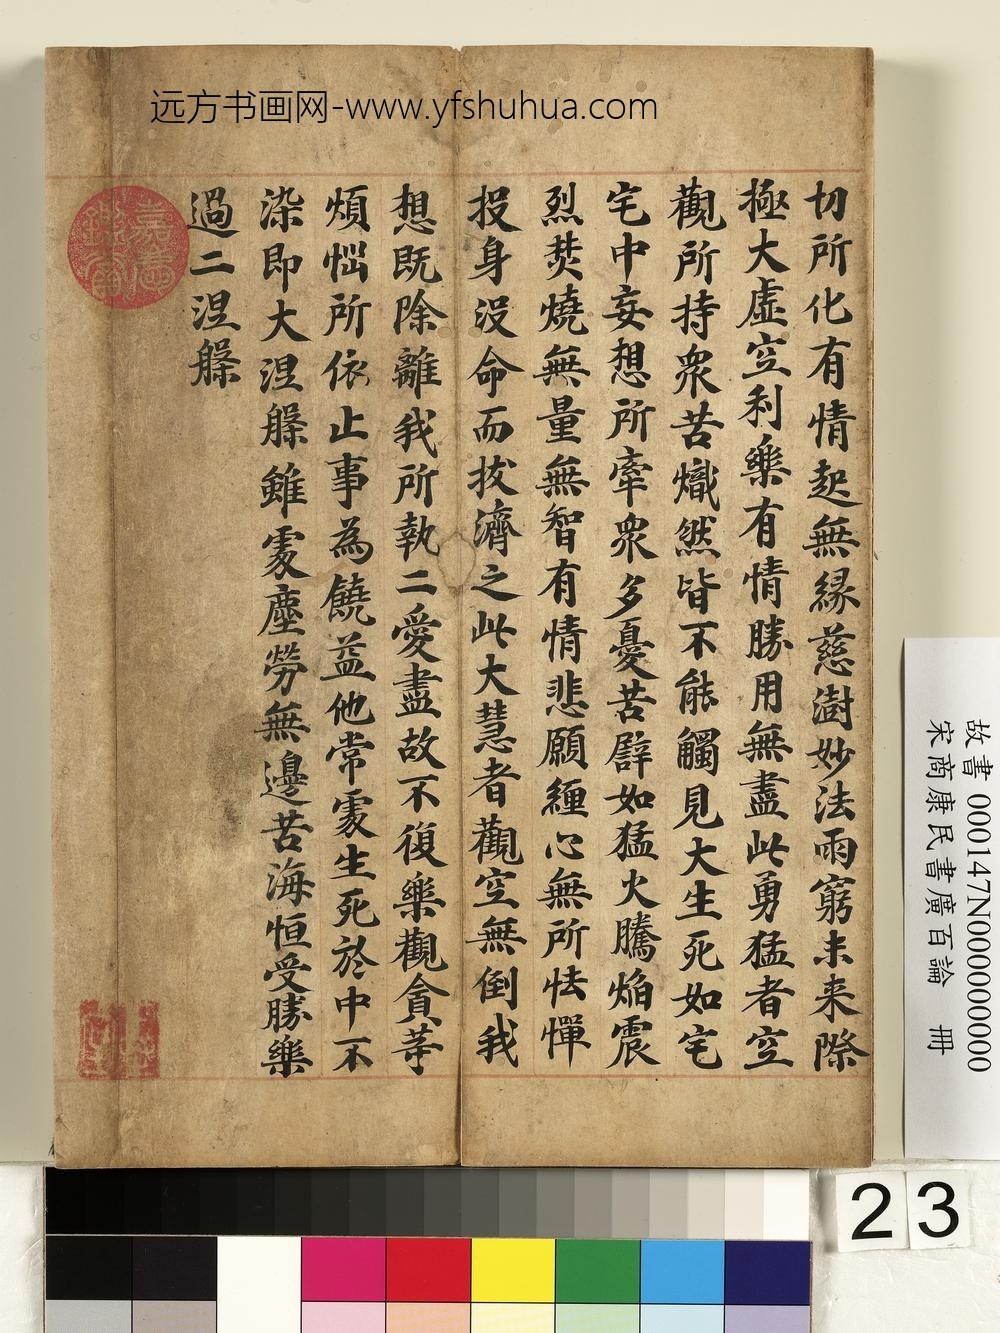 远方书画网-www.yfshuhua.com
切所化有情起無縁慈澍妙法雨窮未来際
極大虚空利樂有情勝用無盡此勇猛者空
觀所持衆苦熾然皆不能觸見大生死如宅
宅中妄想所牽衆多憂苦辟如猛火騰焰震
烈焚燒無量無智有情悲願纏心無所怯憚
投身没命而拔濟之此大慧者觀空無倒我
想既除離我所執二愛盡故不復樂觀貪等
煩惱所依止事為饒益他常處生死於中不
染即大涅槃雖處塵勞無邊苦海恒受勝樂
過二涅槃
故書 000147N000000000
宋商康民書廣百論 冊
23